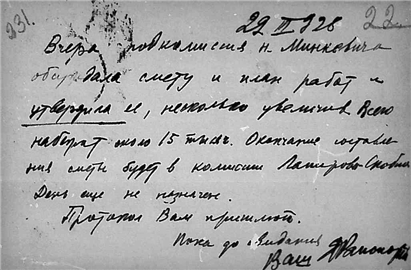 231. 29 III 928 22
Вчера подкомиссия н. Минкевича
обсуждала смету и план работ и
утвердила ее, несколько увеличив. Всего
наберут около 15 тысяч. Окончание
сметы будет в комиссии
День еще не назначен.
Протокол Вам пришлют.
Пока до свидания
Ваш